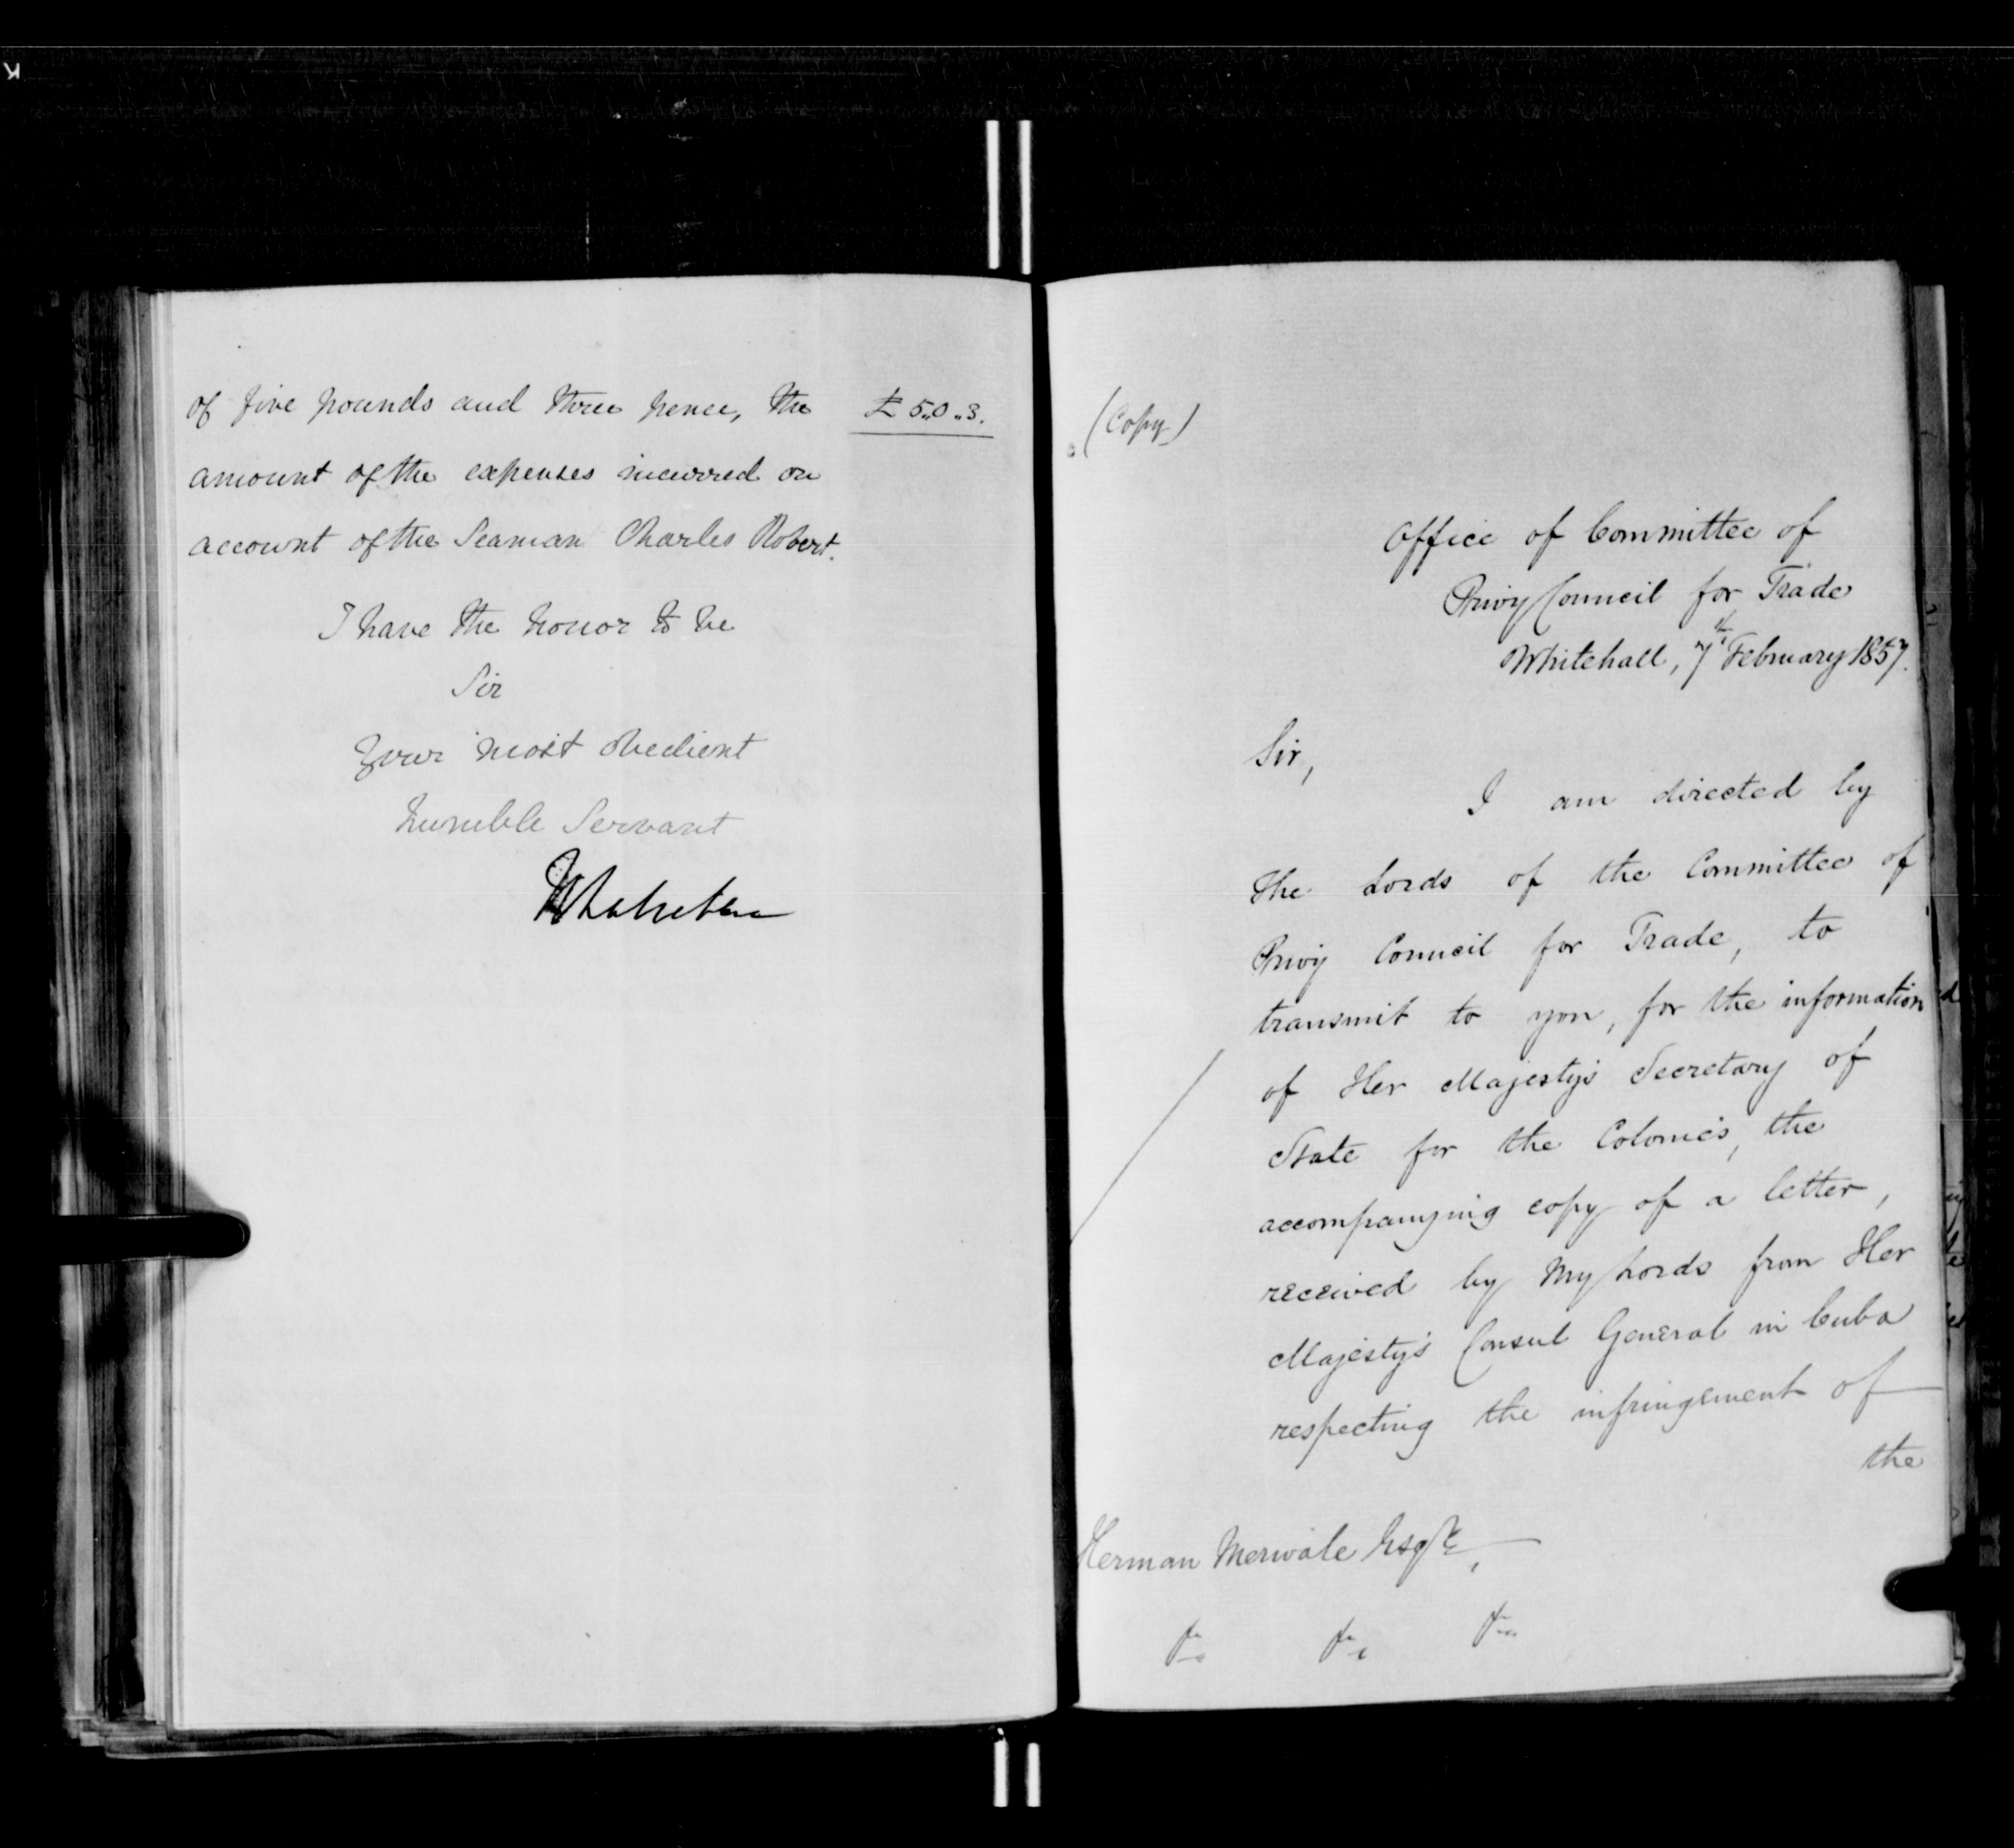 of five pounds and three pence, the £5.,0.,3.
amount of the expenses incurred on
account of the Seaman Charles Robert.
I have the honor to be
Sir
Your most obedient
humble Servant
(Copy)
Office of Committee of
Privy Council for Trade
Whitehall, 7th February 1857.
Sir,
I am directed by
the Lords of the Committee of
Privy Council for Trade, to
transmit to you, for the information
of Her Majesty's Secretary of
State for the Colonies, the
accompanying copy of a letter,
received by My Lords from Her
Majesty's Consul General in Cuba
respecting the infringement of
the
Herman Merivale Esqre,